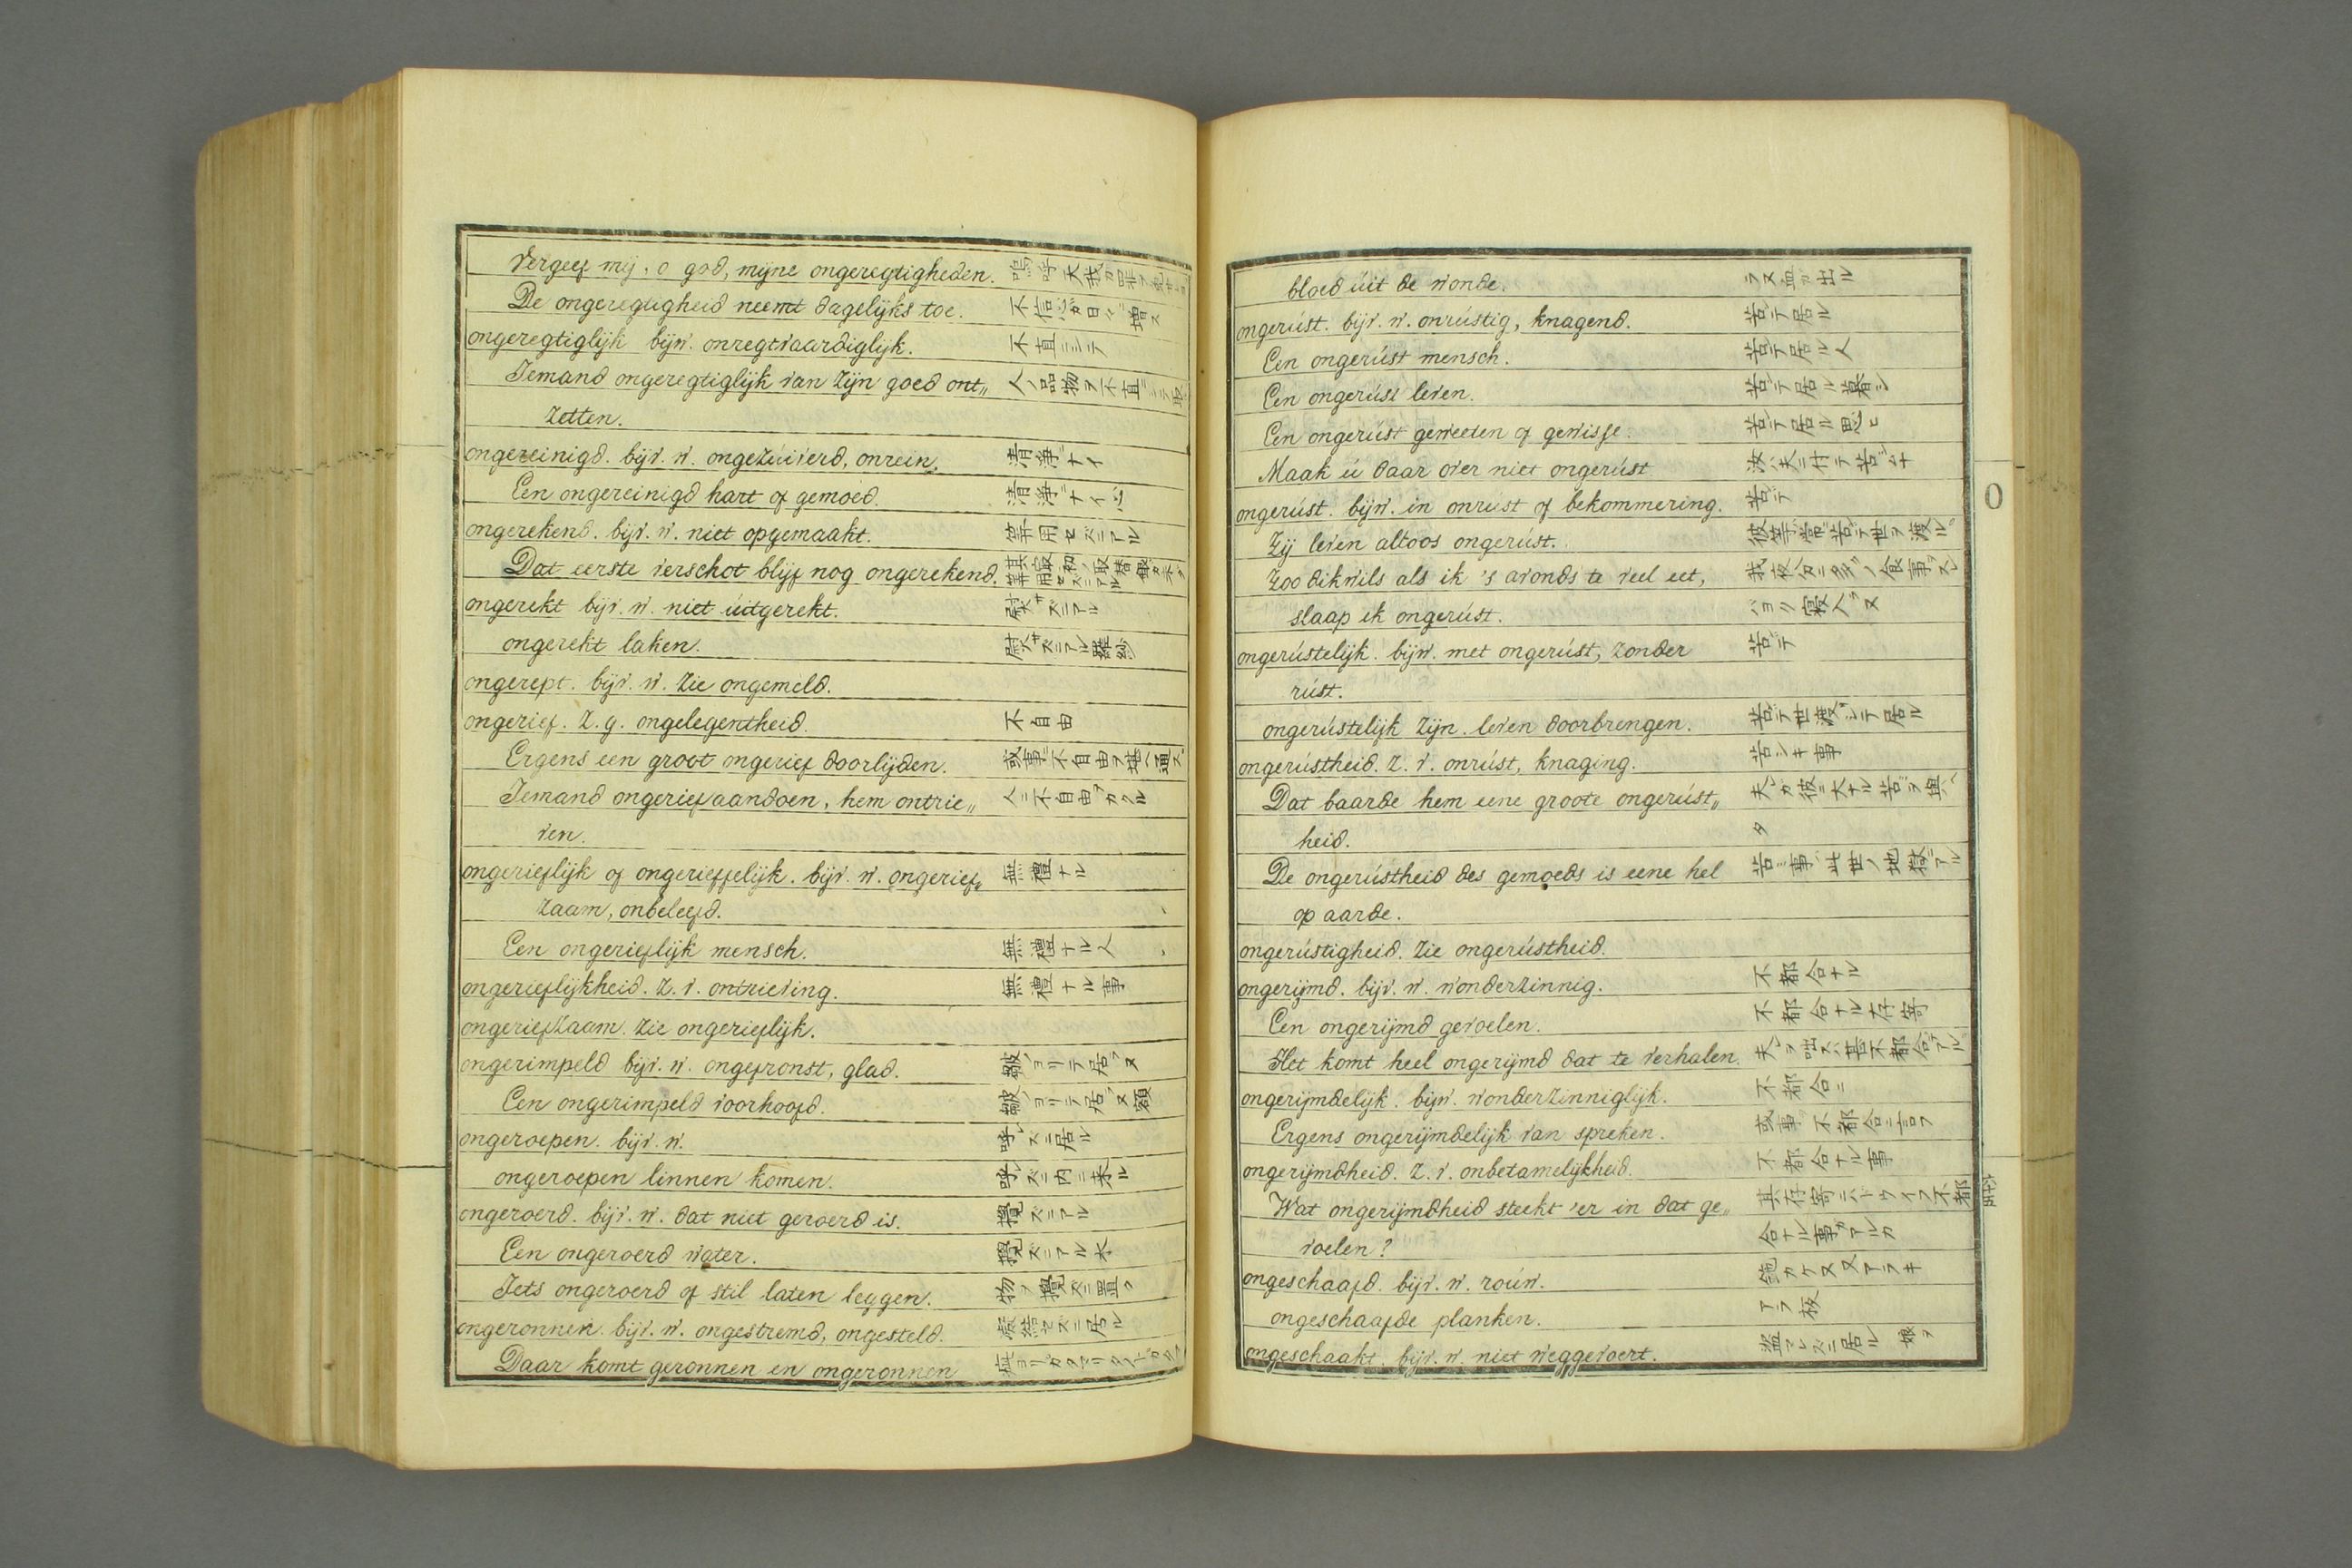 Vergeef mij, o god, mijne ongeregtigheden. 嗚呼天我ガ罪ヲ
De ongeregtigheid neemt dagelijks toe. 不信心ガ日々ニ増ス
ongeregtiglijk bijw. onregtvaardiglijk. 不直ニシテ
Iemand ongeregtiglijk van zijn goed ont„ 人ノ品物ヲ不直ニシテ取
zetten.
ongereinigd. bijv. w. ongezúiverd, onrein. 清浄ニナイ
Een ongereinigd hart of gemoed. 清浄ニナイ心
ongerekend. bijv. w. niet opgemaakt. 筭用セズニアル
Dat eerste verschot blijf nog ongerekend. 其最初ノ取替銀ガ未ダ筭用セズニアル
ongerekt bijv. w. niet úitgerekt. 熨サズニアル
ongerekt laken. 熨サズニアル羅紗
ongerept. bijv. w. Zie ongemeld.
ongerief. z. g. ongelegentheid. 不自由
Ergens een groot ongerief doorlijden. 或事デ不自由ヲ堪ヘ通ス
Iemand ongerief aandoen, hem ontrie„ 人ニ不自由ヲカクル
ven.
ongerieflijk of ongerieffelijk. bijv. w. ongerief„ 無禮ナル
zaam, onbeleefd.
Een ongerieflijk mensch. 無禮ナル人
ongerieflijkheid. z. v. ontrieving. 無禮ナル事
ongeriefzaam. zie ongerieflijk.
ongerimpeld bijv. w. ongefronst, glad. 皺ノヨリテ居ラヌ
Een ongerimpeld voorhoofd. 皺ノヨリテ居ラヌ額
ongeroepen. bijv. w. 呼レズニ居ル
ongeroepen linnen komen. 呼レズニ内ニ来ル
ongeroerd. bijv. w. dat niet geroerd is. 攪ズニアル
Een ongeroerd water. 攪ズニアル水
Iets ongeroerd of stil laten leggen. 物ヲ攪ズニ置ク
ongeronnen. bijv. w. ongestremd, ongesteld. 凝結セズニ居ル
Daar komt geronnen en ongeronnen
bloed úit de wonde. ラヌ血ガ出ル
ongerúst. bijv. w. onrústig, knagend. 苦テ居ル
Een ongerúst mensch. 苦テ居ル人
Een ongerúst leven. 苦テ居ル暮シ
Een ongerúst geweeten of gewisse. 苦テ居ル思ヒ
Maak ú daar over niet ongerúst 汝ハ夫ニ付テ苦ムナ
ongerúst. bijw. in onrust of bekommering. 苦テ
Zij leven altoos ongerúst. 彼等ハ常ニ苦テ世ヲ渡ル
Zoo dikwils als ik 's avonds te veel eet, 我夜分ニ多ノ食事ヲスレ
slaap ik ongerúst. バヨク寝入ラヌ
ongerústelijk. bijw. met ongerúst, zonder 苦テ
rúst.
ongerústelijk zijn leven doorbrengen. 苦テ世渡シテ居ル
ongerústheid. z. v. onrúst, knaging. 苦シキ事
Dat baarde hem eene groote ongerúst„ 夫レガ彼ニ大ナル苦ヲ與ヘ
heid. タ
De ongerústheid des gemoeds is eene hel 苦ム事ハ此世ノ地獄デアル
op aarde.
ongerústigheid. Zie ongerústheid.
ongerijmd. bijv. w. wonderzinnig. 不都合ナル
Een ongerijmd gevoelen. 不都合ナル存寄
Het komt heel ongerijmd dat te verhalen. 夫レヲ咄スハ甚不都合デアル
ongerijmdelijk. bijw. wonderzinniglijk. 不都合ニ
Ergens ongerijmdelijk van spreken. 或事ヲ不都合ニ言フ
ongerijmdheid. z. v. onbetamelijkheid. 不都合ナル事
Wat ongerijmdheid steekt 'er in dat ge„ 其存寄ニハドウイフ不都
voelen? 合ナル事ガアルカ
ongeschaafd. bijv. w. roúw. 鉋カケヌ 又アラキ
ongeschaafde planken. アラ板
ongeschaakt. bijv. w. niet weggevoert. 盗マレズニ居ル 娘ヲ
O